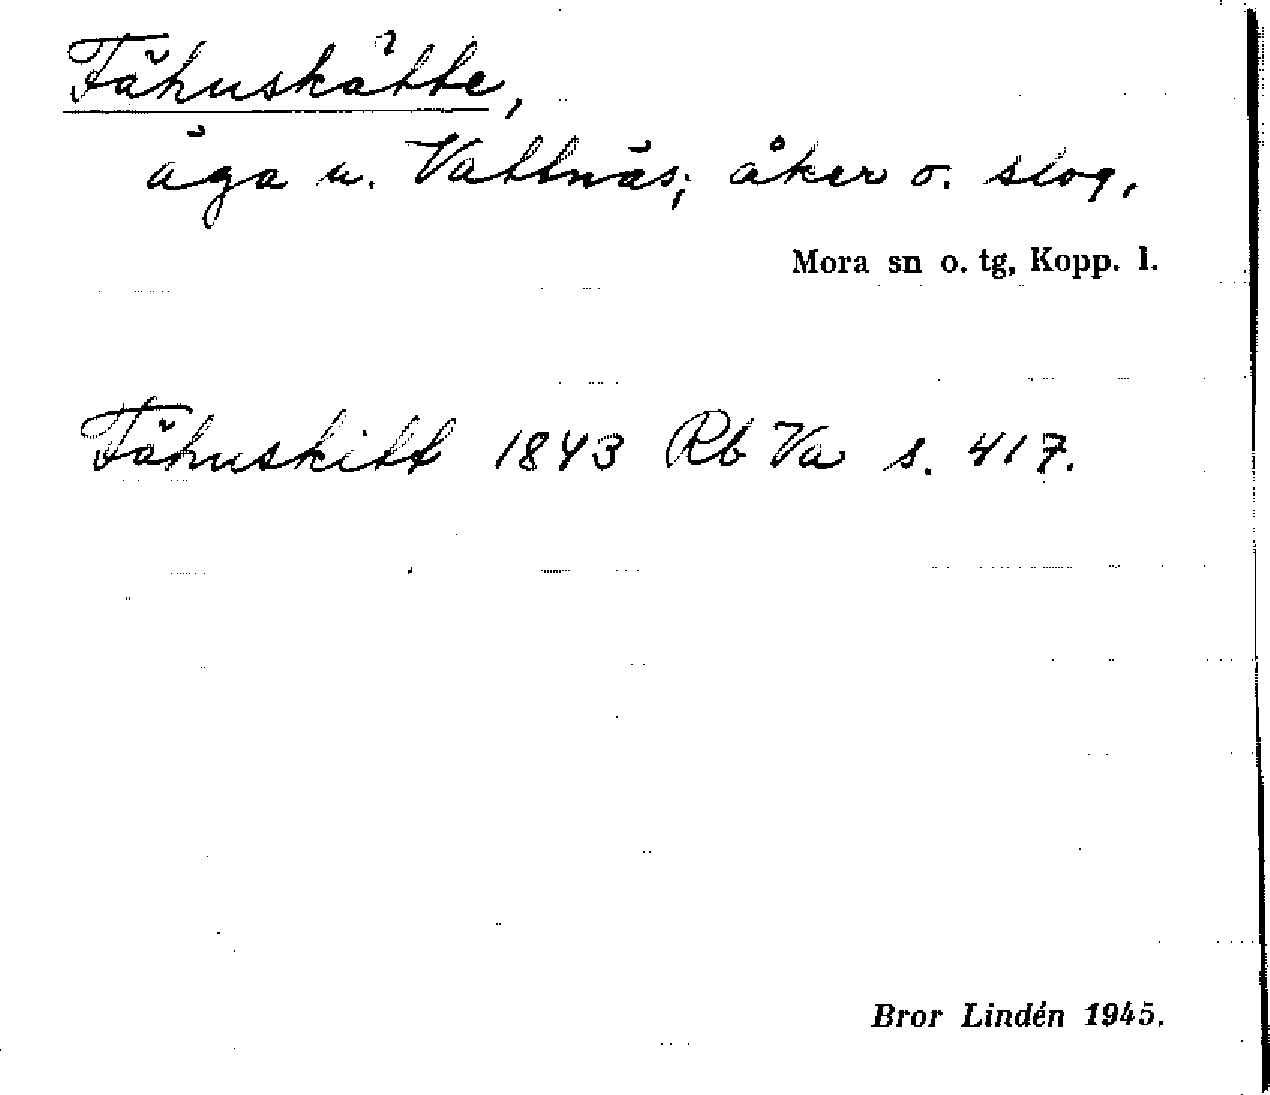 Fähuskätte,
äga u. Vattnäs; åker o. slog,
Mora sn o. tg, Kopp. l.
Fähuskitt 1843 Rb Va s. 417.
Bror Lindén 1945.